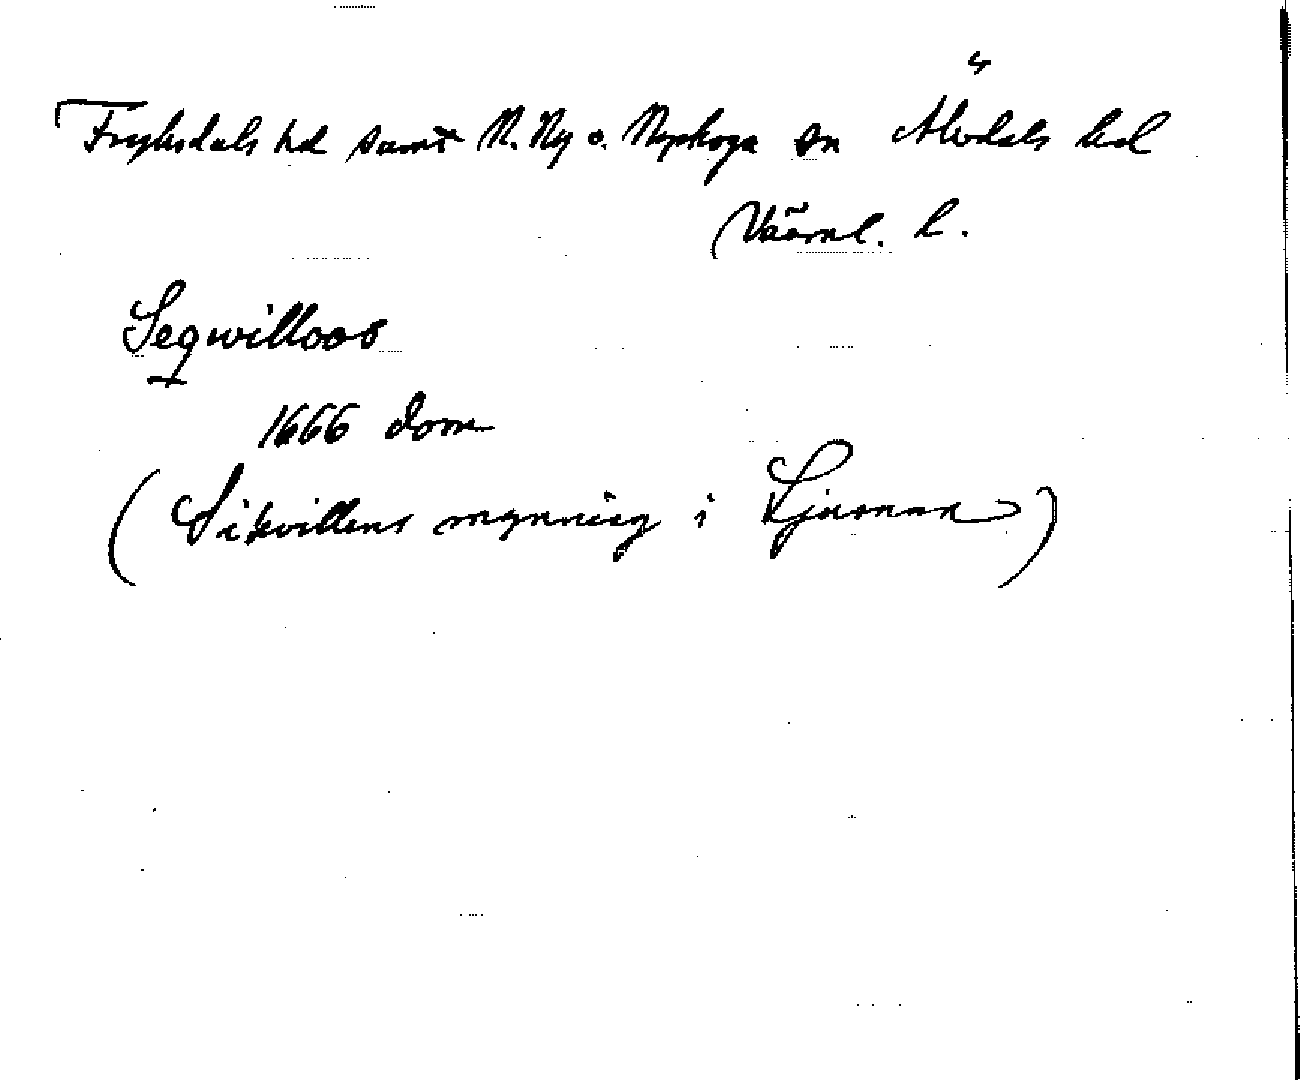 Fryksdals hd samt N. Ny o. Nyskoga sn Älvdals hd
Värml. l.
Seqwilloos
1666 dom
(Sikvillens mynning i Ljusnan)